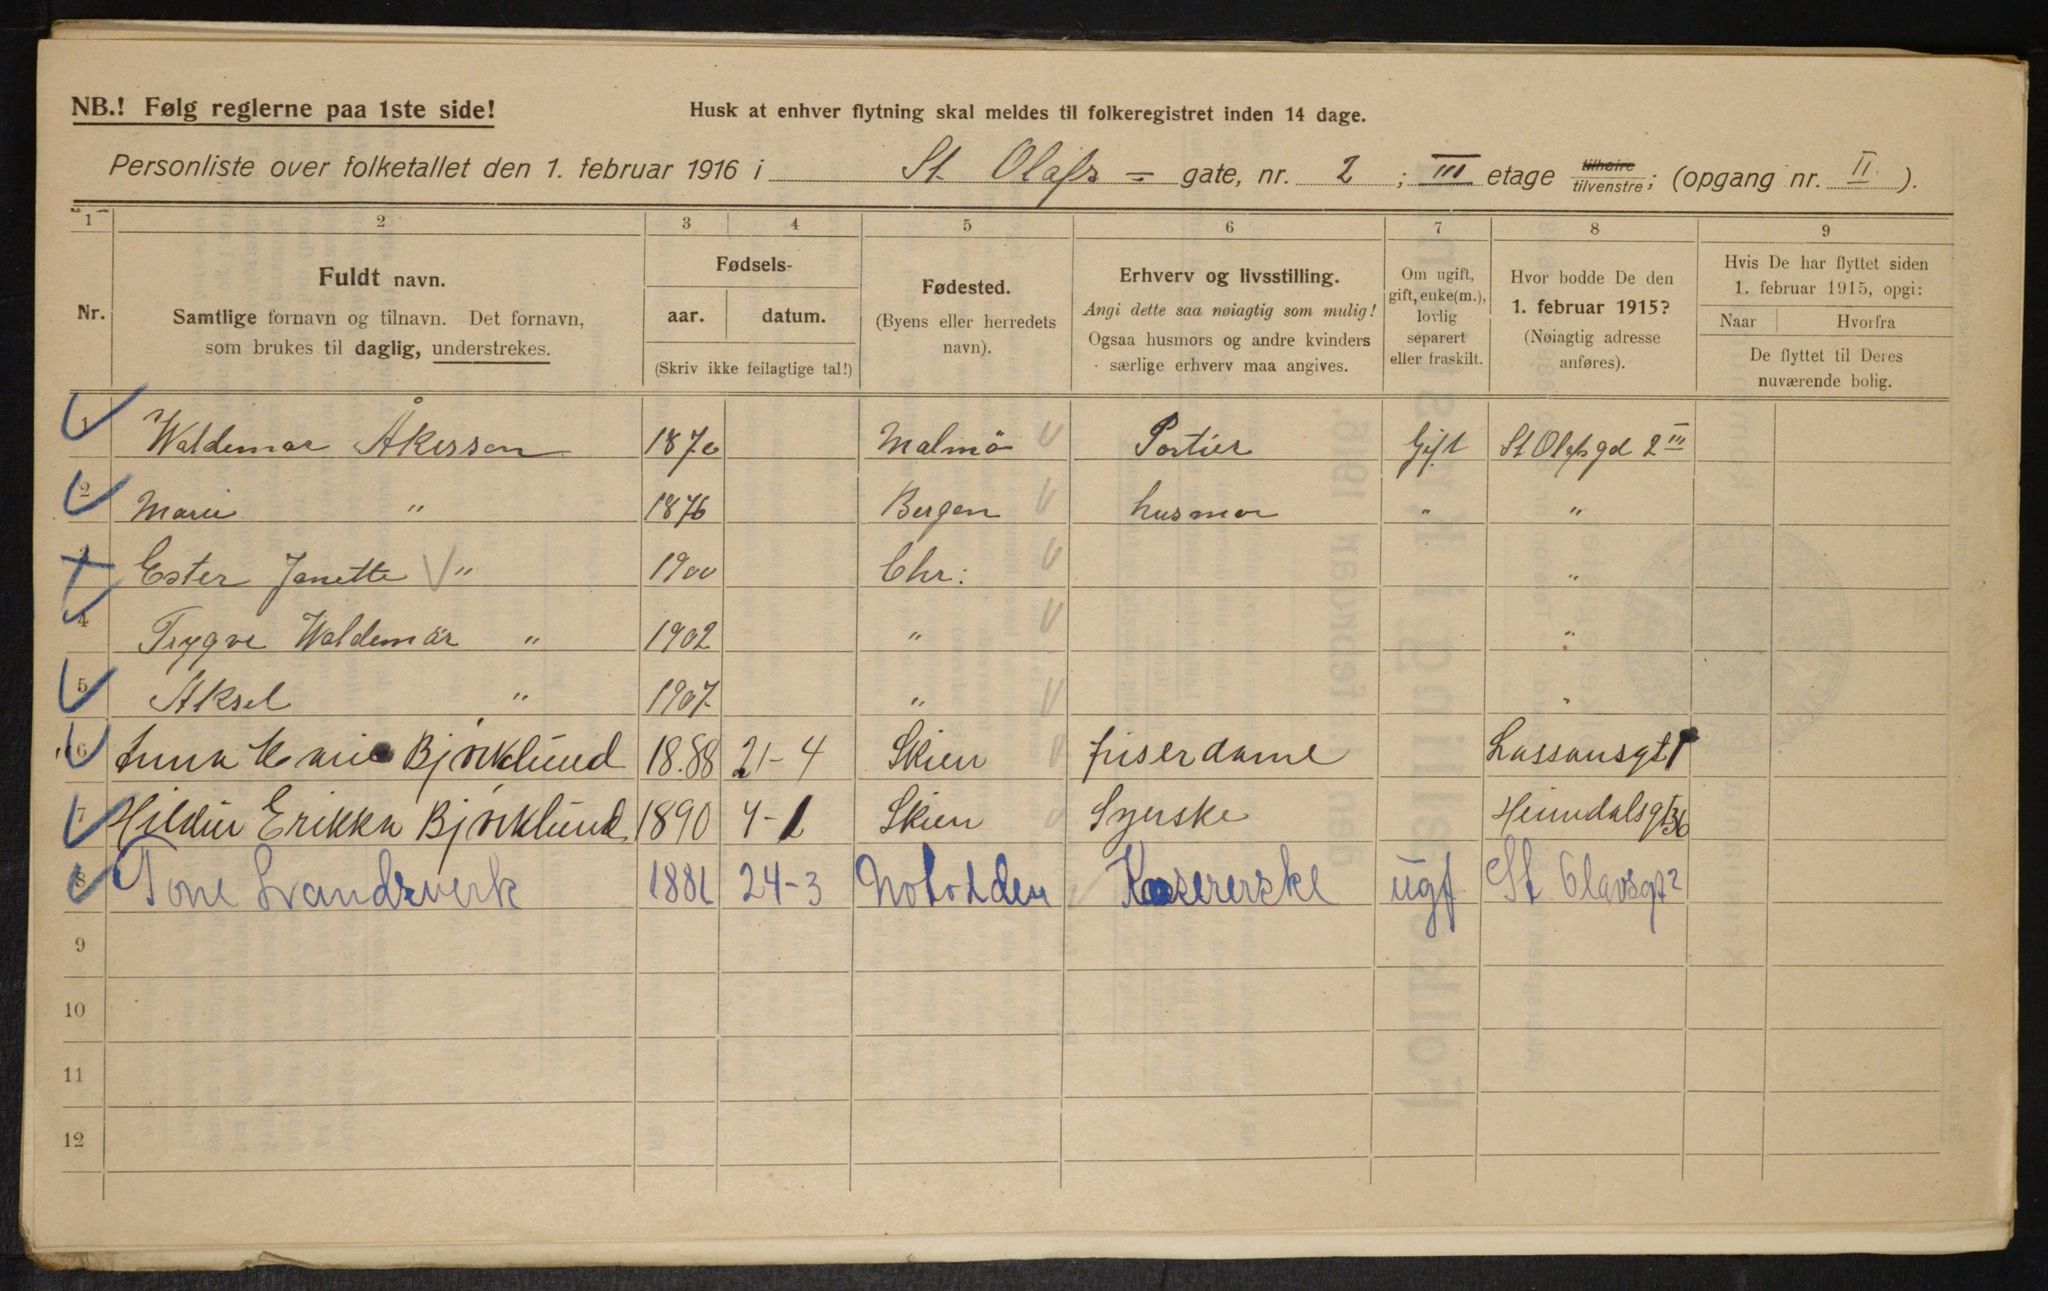 NB.! Følg reglerne paa 1ste side!
Husk at enhver flytning skal meldes til folkeregistret inden 14 dage.
Personliste over folketallet den 1. februar 1916 i St Olafs = gate, nr. 2 ; III etage tilhøire tilvenstre; (opgang nr. II ).
1 2 3 4 5 6 7 8 9
Nr.
Fuldt navn.
Samtlige fornavn og tilnavn. Det fornavn,
som brukes til daglig, understrekes.
Fødsels-
aar. datum.
(Skriv ikke feilagtige tal!)
Fødested.
(Byens eller herredets
navn).
Erhverv og livsstilling.
Angi dette saa nøiagtig som mulig!
Ogsaa husmors og andre kvinders
særlige erhverv maa angives.
Om ugift,
gift, enke(m.),
lovlig
separert
eller fraskilt.
Hvor bodde De den
1. februar 1915?
(Nøiagtig adresse
anføres).
Hvis De har flyttet siden
1. februar 1915, opgi:
Naar Hvorfra
De flyttet til Deres
nuværende bolig.
1 Waldemar Åkesson 1870 Malmö Portier Gift St Olafsgd 2 III
2 Marie " 1876 Bergen husmor " "
3 Ester Janette " 1900 Chr: "
4 Trygve Waldemar " 1902 " "
5 Aksel " 1907 " "
6 Anna Marie Bjørklund 1888 21-4 Skien friserdame Lassonsgt 1
7 Hildur Erikka Bjørklund 1890 4-1 Skien Syerske Heimdalsgt 36
8 Tone Svandsverk 1881 24-3 Notodden Kasererske ugf St. Olavsgt 2
9
10
11
12